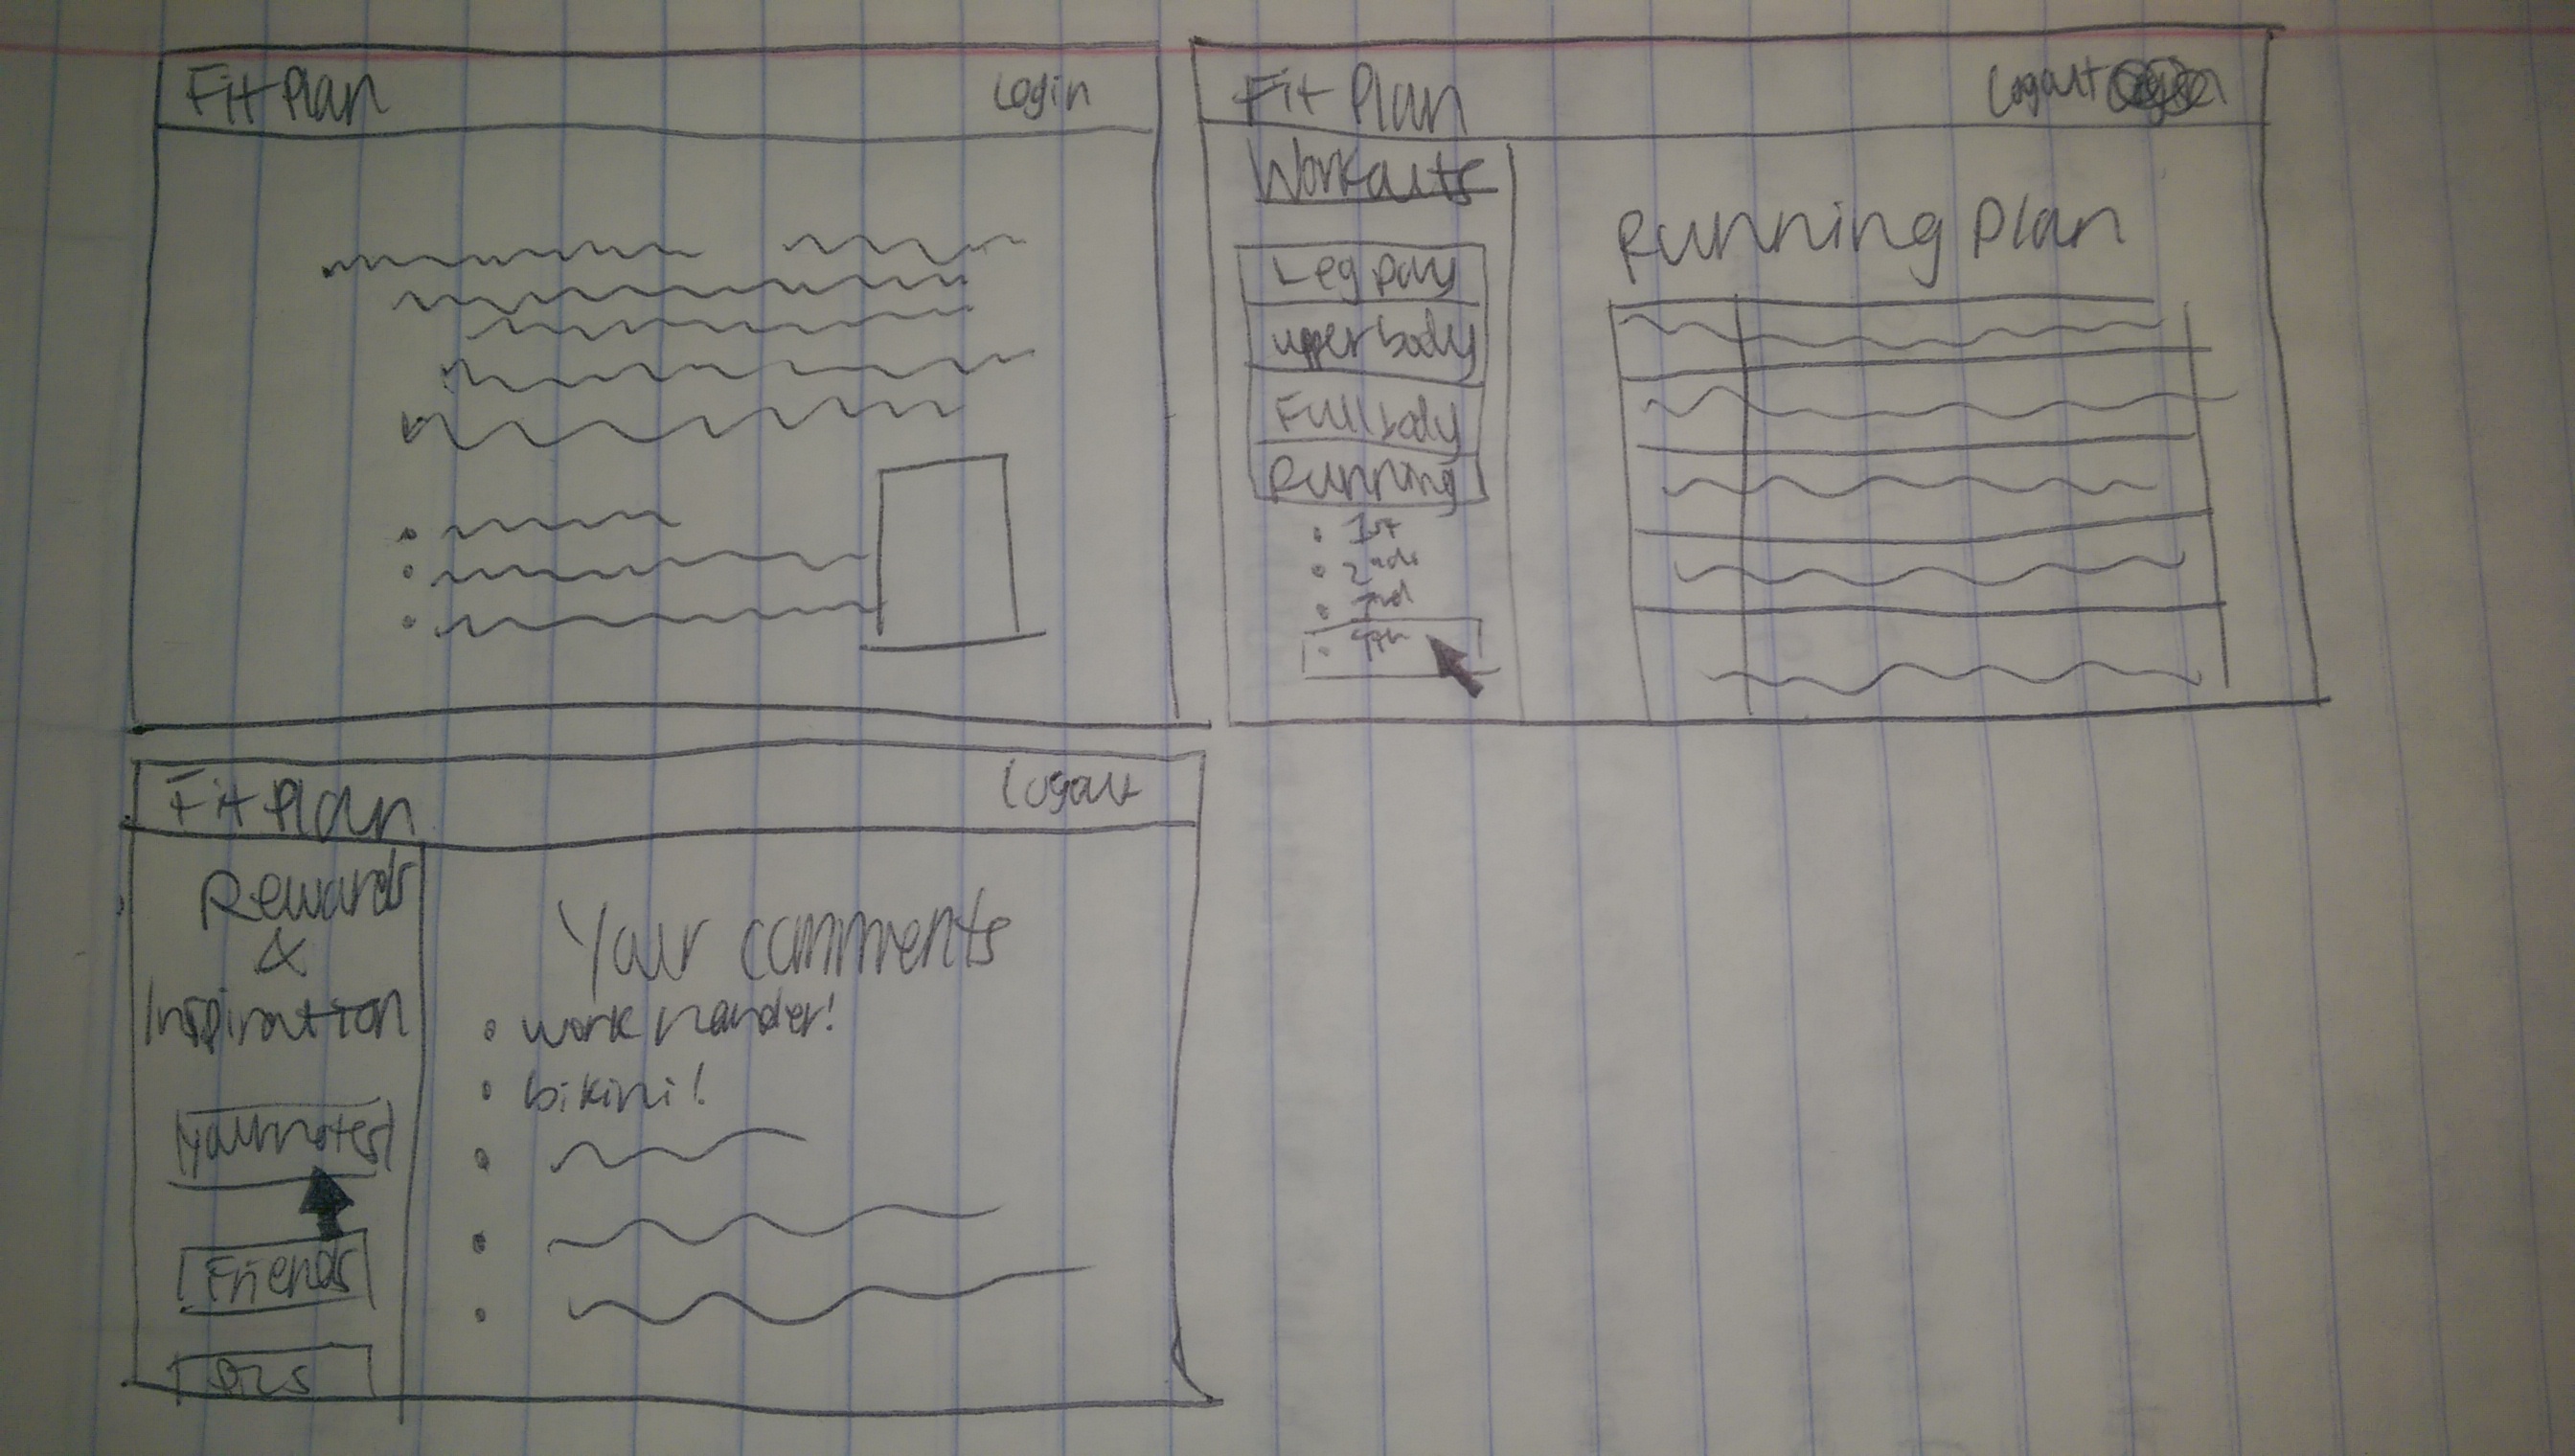 Fit Plan
Login
Fit Plan
Logout
Workouts
Leg Day
upper body
Full body
Running
1st
2nd
Running Plan
Fit Plan
Logout
Rewards
&
Inspiration
Your notes
Friends
Your comments
work harder!
bikini!